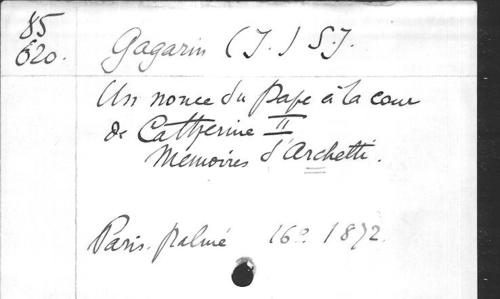 85
620.
Gagarin (J.) S.J.
Un nonce du Pape à la cour
de Catherine II
Mémoires d'Archetti.
Paris. Palmé 16º 1872.